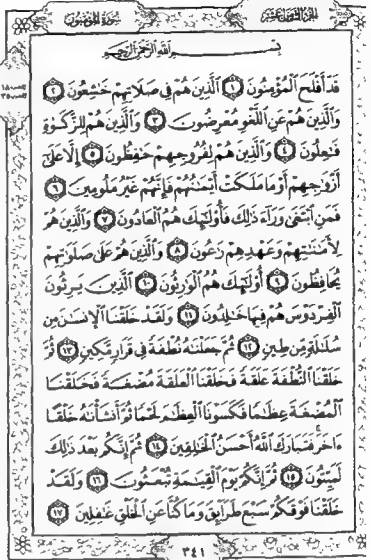 الجزء الثامن عشر
سورة المؤمنون
بسم الله الرحمن الرحيم
قَدْ أَفْلَحَ ٱلْمُؤْمِنُونَ ١ ٱلَّذِينَ هُمْ فِى صَلَاتِهِمْ خَٰشِعُونَ ٢
وَٱلَّذِينَ هُمْ عَنِ ٱللَّغْوِ مُعْرِضُونَ ٣ وَٱلَّذِينَ هُمْ لِلزَّكَوٰةِ
فَٰعِلُونَ ٤ وَٱلَّذِينَ هُمْ لِفُرُوجِهِمْ حَٰفِظُونَ ٥ إِلَّا عَلَىٰٓ
أَزْوَٰجِهِمْ أَوْ مَا مَلَكَتْ أَيْمَٰنُهُمْ فَإِنَّهُمْ غَيْرُ مَلُومِينَ ٦
فَمَنِ ٱبْتَغَىٰ وَرَآءَ ذَٰلِكَ فَأُو۟لَٰٓئِكَ هُمُ ٱلْعَادُونَ ٧ وَٱلَّذِينَ هُمْ
لِأَمَٰنَٰتِهِمْ وَعَهْدِهِمْ رَٰعُونَ ٨ وَٱلَّذِينَ هُمْ عَلَىٰ صَلَوَٰتِهِمْ
يُحَافِظُونَ ٩ أُو۟لَٰٓئِكَ هُمُ ٱلْوَٰرِثُونَ ١٠ ٱلَّذِينَ يَرِثُونَ
ٱلْفِرْدَوْسَ هُمْ فِيهَا خَٰلِدُونَ ١١ وَلَقَدْ خَلَقْنَا ٱلْإِنسَٰنَ مِن
سُلَٰلَةٍ مِّن طِينٍ ١٢ ثُمَّ جَعَلْنَٰهُ نُطْفَةً فِى قَرَارٍ مَّكِينٍ ١٣ ثُمَّ
خَلَقْنَا ٱلنُّطْفَةَ عَلَقَةً فَخَلَقْنَا ٱلْعَلَقَةَ مُضْغَةً فَخَلَقْنَا
ٱلْمُضْغَةَ عِظَٰمًا فَكَسَوْنَا ٱلْعِظَٰمَ لَحْمًا ثُمَّ أَنشَأْنَٰهُ خَلْقًا
ءَاخَرَ فَتَبَارَكَ ٱللَّهُ أَحْسَنُ ٱلْخَٰلِقِينَ ١٤ ثُمَّ إِنَّكُم بَعْدَ ذَٰلِكَ
لَمَيِّتُونَ ١٥ ثُمَّ إِنَّكُمْ يَوْمَ ٱلْقِيَٰمَةِ تُبْعَثُونَ ١٦ وَلَقَدْ
خَلَقْنَا فَوْقَكُمْ سَبْعَ طَرَآئِقَ وَمَا كُنَّا عَنِ ٱلْخَلْقِ غَٰفِلِينَ ١٧
٣٤١